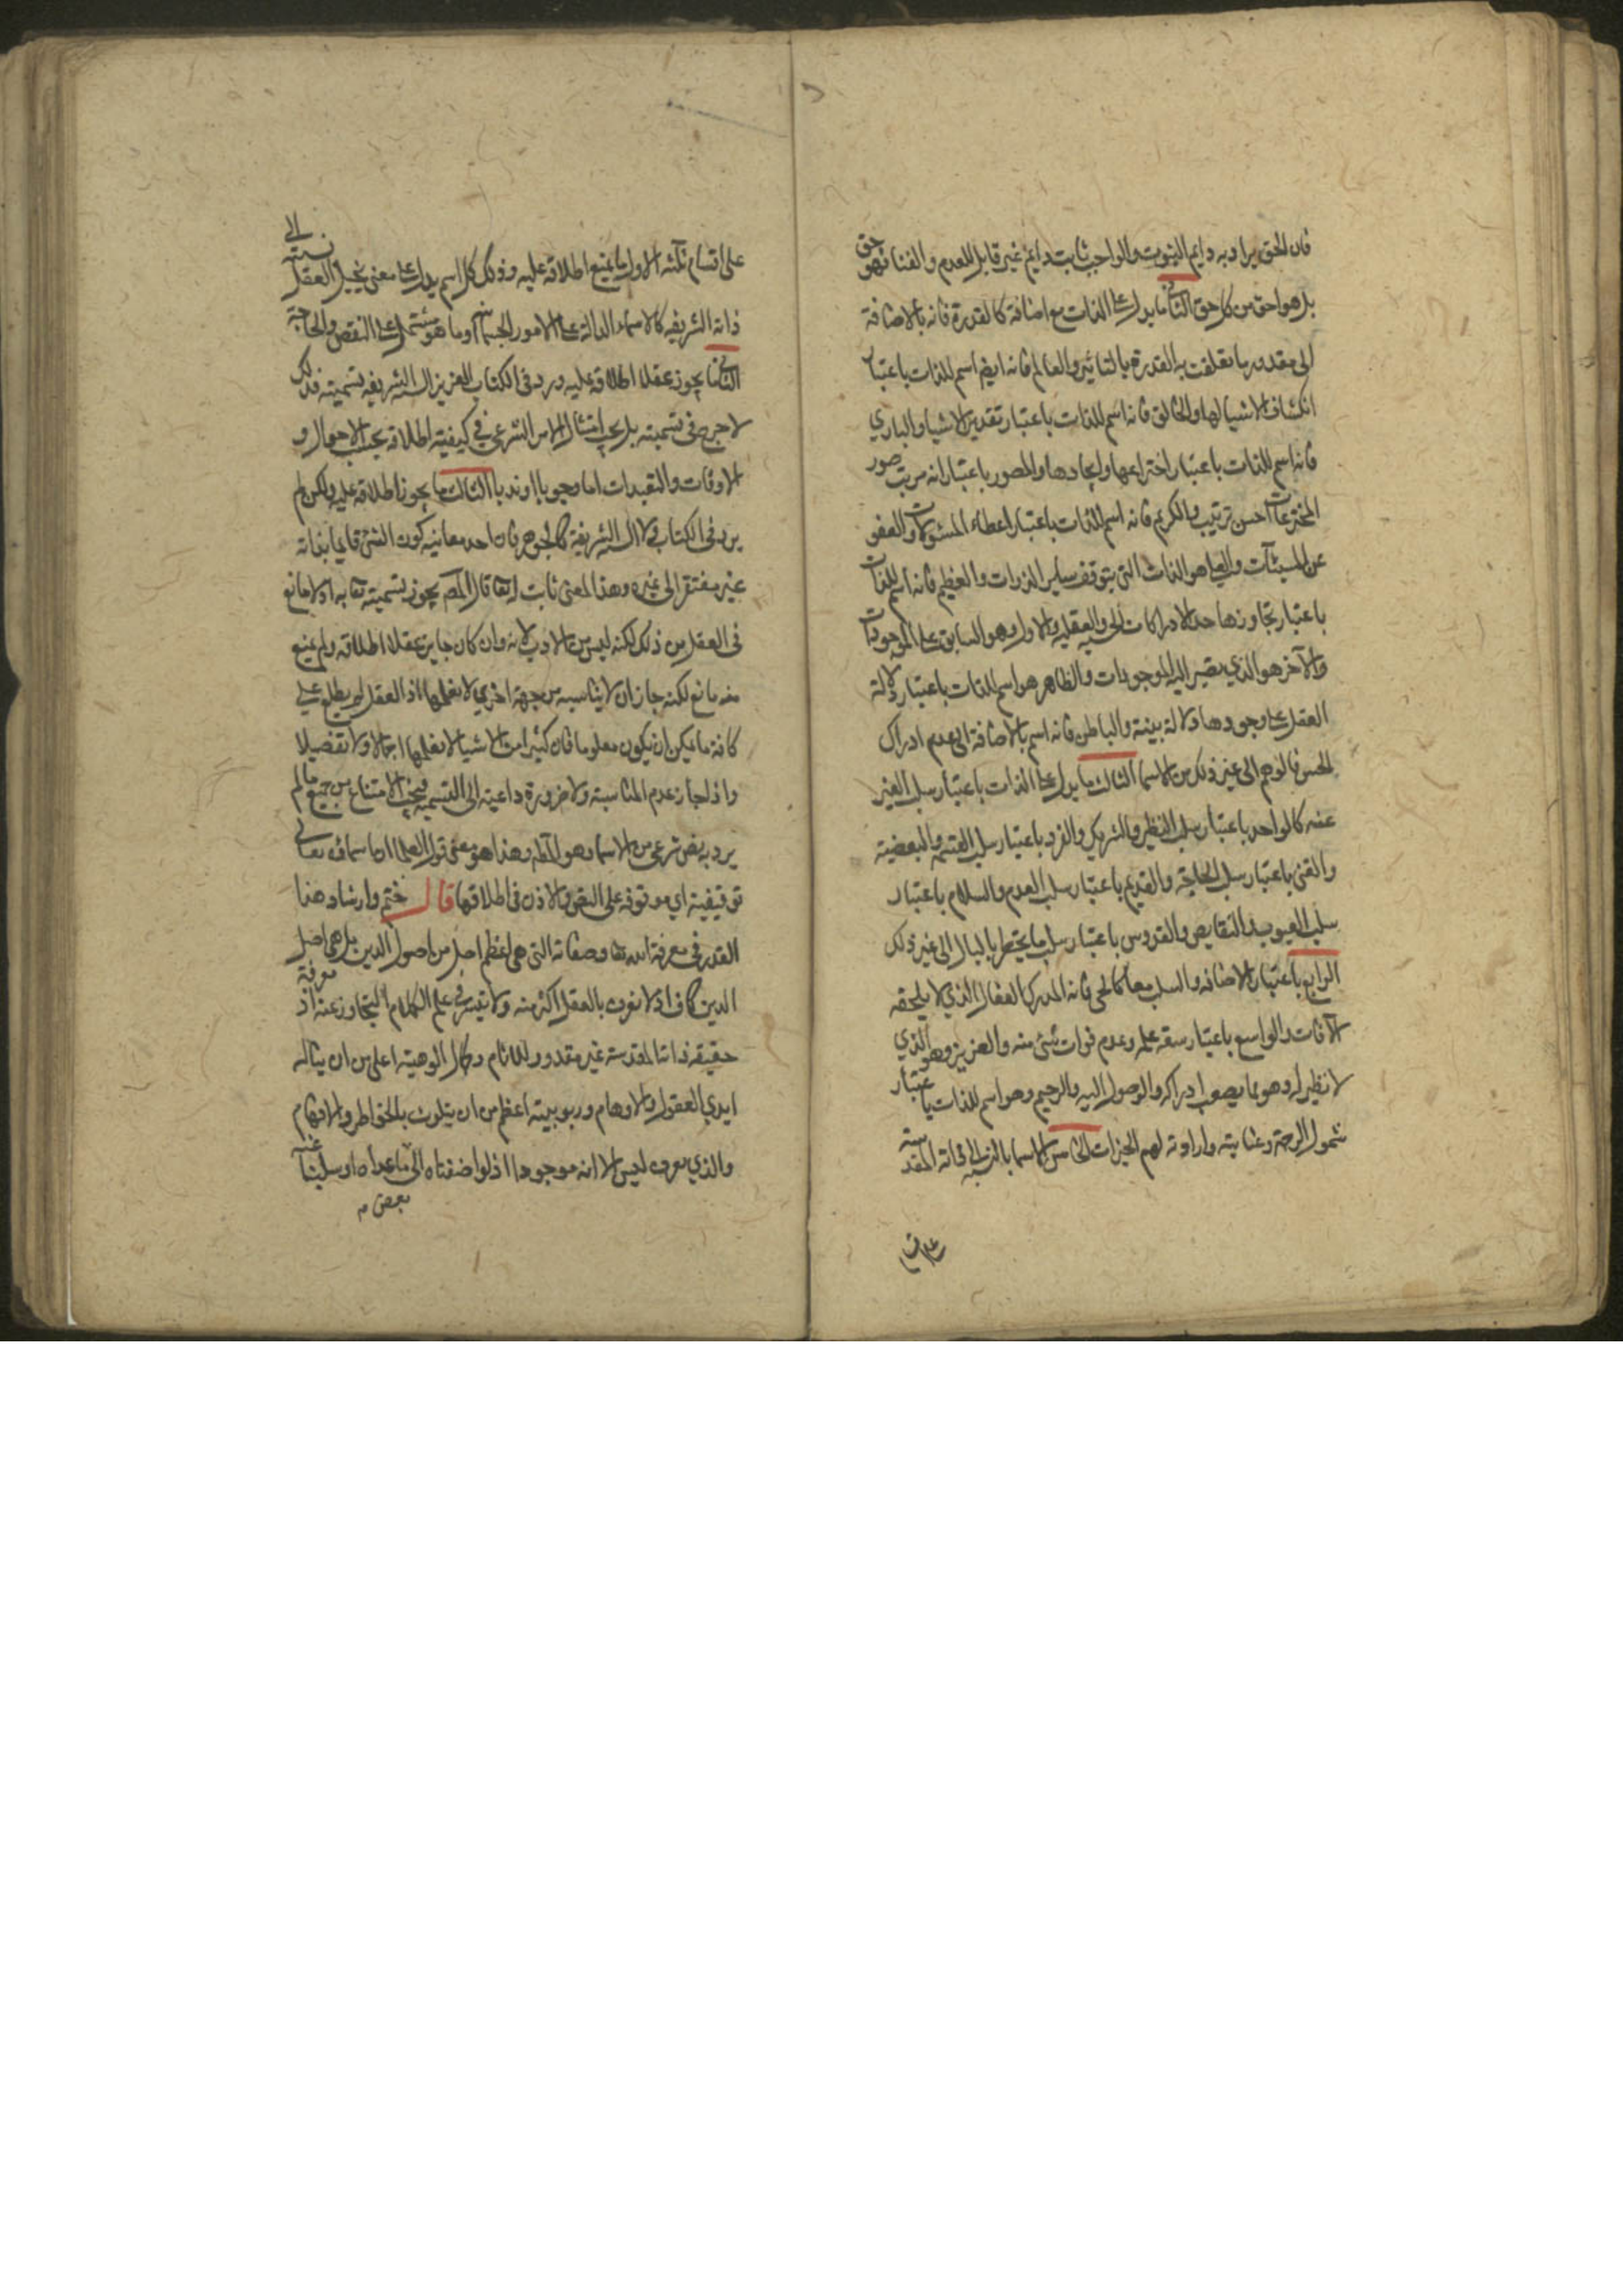 فان الحق يراد به دايم الثبوت والواجب ثابت دايم غير قابل للعدم والفنا فهو حق
بل هو احق من كل حق الثاني ما يدل على الذات مع اضافة كالقدرة فانه بالاضافة
الى مقدور ما تعلقت به القدرة بالتاثير والعالم فانه ايضا اسم للذات باعتبار
انكشاف الاشيا لها والخالق فانه اسم للذات باعتبار تقدير الاشيا والباري
فانه اسم للذات باعتبار اختراعها وايجادها والمصور باعتبار انه مرتب صور
المخترعات احسن ترتيب والكريم فانه اسم للذات باعتبار اعطاء المسئولات والعفو
عن السيئآت والعلي هو الذات التي يتوقف ساير الذوات والعظيم فانه اسم للذات
باعتبار تجاوزها حد الادراكات الحسيه والعقليه والاول وهو السابق على الموجودات
والآخر هو الذي يصير اليه الموجودات والظاهر هو اسم للذات باعتبار دلالة
العقل على وجودها دلالة بينة والباطن فانه اسم بالاضافة الى عدم ادراك
الحس فالوهم الى غير ذلك من الاسما الثالث ما يدل على الذات باعتبار سلب الغير
عنه كالواحد باعتبار سلب النظير والشريك والفرد باعتبار سلب القسمه والبعضية
والغنى باعتبار سلب الحاجة والقديم باعتبار سلب العدم والسلام باعتبار
سلب العيوب والنقايص والقدوس باعتبار سلب ما يخطر بالبال الى غير ذلك
الرابع باعتبار الاضافه والسلب معا كالحي فانه المدرك الفعال الذي لا يلحقه
الآفات والواسع باعتبار سعة علمه وعدم فوات شئ منه والعزيز وهو الذي
لا نظير له وهو مما يصعب ادراكه والوصول اليه والرحيم وهو اسم للذات باعتبار
شمول الرحمة وعنايته وارادته لهم الخيرات الخامس الاسما بالنسبه الى ذاته المقدسة
على اقسام ثلثه الاول ما يمنع اطلاقه عليه وذلك كل اسم يدل على معنى يحيل العقل نسبته الى
ذاته الشريفه كالاسماء الدالة على الامور الجسمانية او ما هو مشتمل على النقص والحاجة
الثاني ما يجوز عقلا اطلاقه عليه وورد في الكتاب العزيز السنه الشريفه تسميته فذلك
لا حرج في تسميته بل يجب امتثال الامر الشرعي في كيفية اطلاقه بحسب الاحوال و
الاوقات والتعبدات اما وجوبا او ندبا الثالث ما يجوز اطلاقه عليه ولكن لم
يرد في الكتاب ولا السنه الشريفة كالجوهر فان احد معانيه كون الشئ قايما بذاته
غير مفتقر الى غيره وهذا المعنى ثابت له تعا قال المص يجوز تسميته تعا به اذ لا مانع
في العقل من ذلك لكنه ليس من الادب لانه وان كان جايز عقلا اطلاقه ولم يمنع
منه مانع لكنه جاز ان لا يناسبه من جهة اخري لا نعلمها اذ العقل لم يطلع على
كافة ما يمكن ان يكون معلوما فان كثيرا من الاشيا لا نعلمها اجمالا ولا تفصيلا
واذا جاز عدم المناسبة ولا ضرورة داعية الى التسميه فيجب الامتناع من جميع ما لم
يرد به نص شرعي من الاسماء وهو المط وهذا هو معنى قول العلما ان اسماؤه تعالى
توقيفية اي موقوفه على النص والاذن في اطلاقها قال ختم وارشاد هذا
القدر في معرفة الله تعا وصفاته التي هي اعظم اصل من اصول الدين بل هي اصل
الدين كاف اذ لا نعرف بالعقل اكثر منه ولا يتيسر في علم الكلام التجاوز عنه اذ معرفة
حقيقه ذاتنا المقدسة غير مقدور للانام وكمال الوهيته اعلى من ان يناله
ايدي العقول والاوهام وربوبيته اعظم من ان يتلوث بالخواطر والافهام
والذي نعرف ليس الا انه موجود اذ لو اضفناه الى ما عداه او سلبنا عنه
بعض م